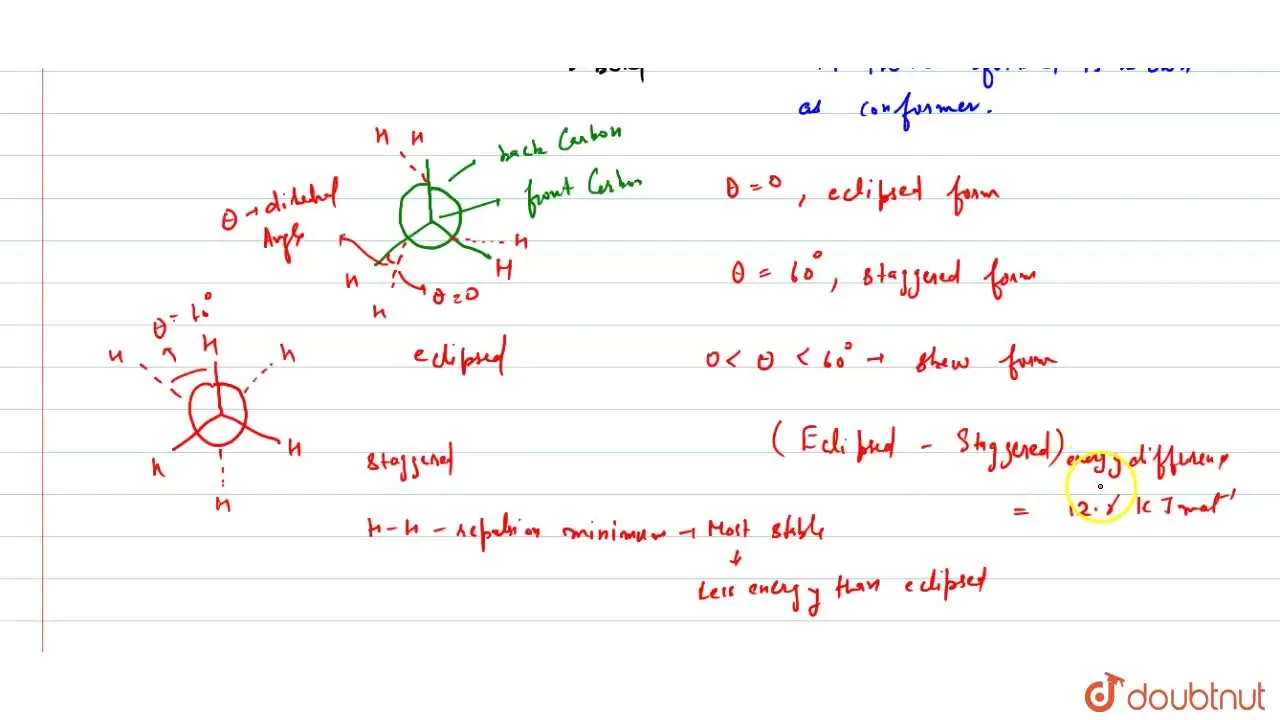 as conformer.
H H
back Carbon
front Carbon
θ → dihedral
Angle
H
H
H
H
θ = 0
eclipsed
θ = 0, eclipsed form
θ = 60°, staggered form
0 < θ < 60° → skew form
θ = 60°
H
H
H
H
H
H
staggered
(Eclipsed - Staggered) energy difference
= 12. kJ mol⁻¹
H-H - repulsion minimum → Most stable
↓
Less energy than eclipsed
doubtnut